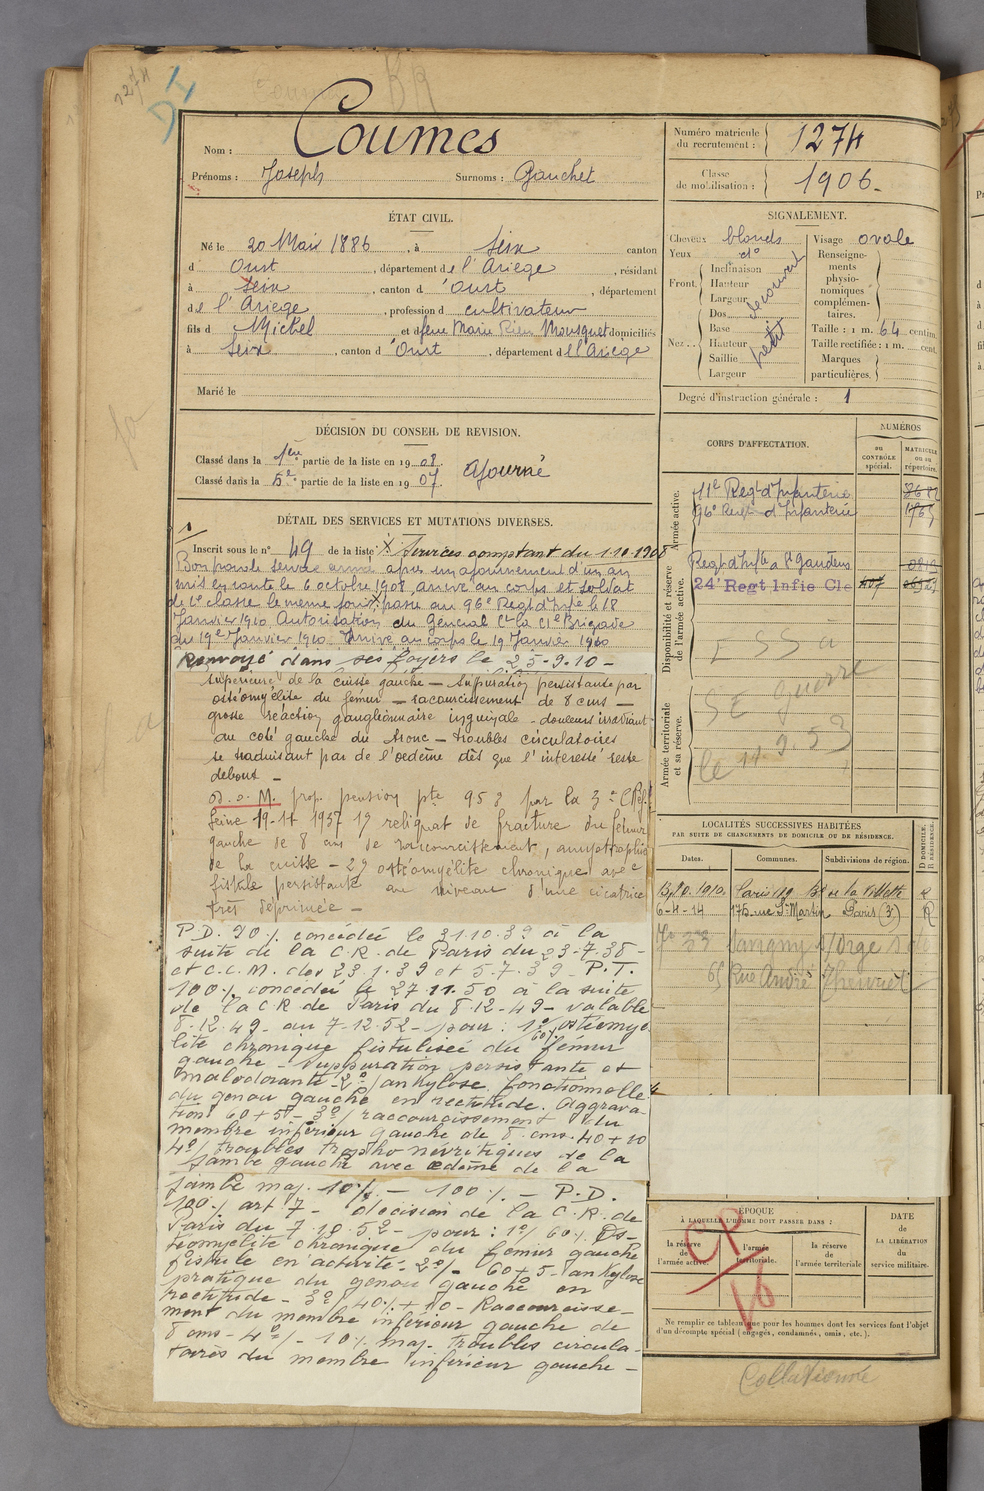 1274
D I
BA
Nom : Coumes
Prénoms : Joseph Surnoms : Gauchet
Numéro matricule
du recrutement : 1274
Classe
de mobilisation : 1906.
ÉTAT CIVIL.
Né le 20 Mars 1886, à Seix canton
d Oust, département de l'Ariège, résidant
à Seix, canton d'Oust, département
de l'Ariège, profession d cultivateur
fils d Michel et d feue Marie Rieu Mousquet domiciliés
à Seix, canton d'Oust, département d l'Ariège
Marié le
SIGNALEMENT.
Cheveux blonds
Yeux do
Front. Inclinaison
Hauteur
Largeur
découvert
Nez. Dos
Base
Hauteur
Saillie
Largeur
petit
Visage ovale
Renseigne-
ments
physio-
nomiques
complémen-
taires.
Taille : 1 m. 64 centim.
Taille rectifiée : 1 m. cent.
Marques
particulières.
Degré d'instruction générale : 1
DÉCISION DU CONSEIL DE REVISION.
Classé dans la 1ère partie de la liste en 1908.
Classé dans la 5e partie de la liste en 1907. Ajourné
DÉTAIL DES SERVICES ET MUTATIONS DIVERSES.
Inscrit sous le n° 49 de la liste X Services comptant du 1.10.1908
Bon pour le service armé après un ajournement d'un an
mis en route le 6 octobre 1908 arrivé au corps et soldat
de 2e classe le même jour X passé au 96e Regt d'Infie le 18
Janvier 1910. Autorisation du Général Ct la 61e Brigade
du 19e Janvier 1910. Arrivé au corps le 19 Janvier 1910
Renvoyé dans ses foyers le 25-9-10 -
supérieure de la cuisse gauche — supuration persistante par
ostéomyélite du fémur — racourcissement de 8 cms —
grosse réaction ganglionnaire inguinale - douleurs irradiant
au coté gauche du tronc — troubles circulatoires
se traduisant par de l'oedème dès que l'intéressé reste
debout —
M. prop. pension pte 95% par la 3e C Réf.
Seine 19-11 1937 1° reliquat de fracture du fémur
gauche de 8 cms de raccourcissement, amyotrophie
de la cuisse - 2° ostéomyélite chronique avec
fistule persistante au niveau d'une cicatrice
très déprimée —
P.D. 90% concédée le 31.10.39 à la
suite de la C.R. de Paris du 23-7-38-
et C.C.M. des 23.1.39 et 5.7.39 - P.T.
100% concédée le 27.11.50 à la suite
de la C R de Paris du 8.12-49 - valable
8.12.49 - au 7-12-52 - pour : 1°/ 60% ostéomyé
lite chronique fistulisée du fémur
gauche - suppuration persistante et
malodorante - 2°/ ankylose fonctionnelle
du genou gauche en rectitude. Aggrava-
tion 60+5 - 3°/ raccourcissement du
membre inférieur gauche de 8 cms. 40+10
4°/ troubles tropho névritiques de la
jambe gauche avec œdème de la
jambe maj. 10% - 100% - P.D.
100% art 7 - décision de la C.R. de
Paris du 7.10.52 - pour : 1°/ 60% Os-
téomyélite chronique du fémur gauche
fistule en activité - 2°/ - 60+5 - ankylose
pratique du genou gauche en
rectitude - 3°/ 40%+10 - Raccourcisse-
ment du membre inférieur gauche de
8 cms - 4°/ - 10% maj. troubles circula-
toires du membre inférieur gauche -
CORPS D'AFFECTATION.
NUMÉROS
au
CONTRÔLE
spécial.
MATRICULE
ou au
répertoire.
Armée active.
11e Regt d'Infanterie
96e Regt d'Infanterie
Disponibilité et réserve
de l'armée active.
Regt d'Infie à St Gaudens
24e Regt Infie Cie
Armée territoriale
et sa réserve.
ESS à
SE guerre
le 11.9.53
LOCALITÉS SUCCESSIVES HABITÉES
PAR SUITE DE CHANGEMENTS DE DOMICILE OU DE RÉSIDENCE.
Dates. Communes. Subdivisions de région. D DOMICILE. R RÉSIDENCE.
13.10.1910. Paris 19 Bd de la Villette R
6-4-14 175 rue St Martin Paris (3) R
Savigny s/Orge
65 Rue André Thevret
ÉPOQUE
À LAQUELLE L'HOMME DOIT PASSER DANS :
la réserve
de
l'armée active.
l'armée
territoriale.
la réserve
de
l'armée territoriale
DATE
de
LA LIBÉRATION
du
service militaire.
CP
16
Ne remplir ce tableau que pour les hommes dont les services font l'objet
d'un décompte spécial (engagés, condamnés, omis, etc.).
Collationné